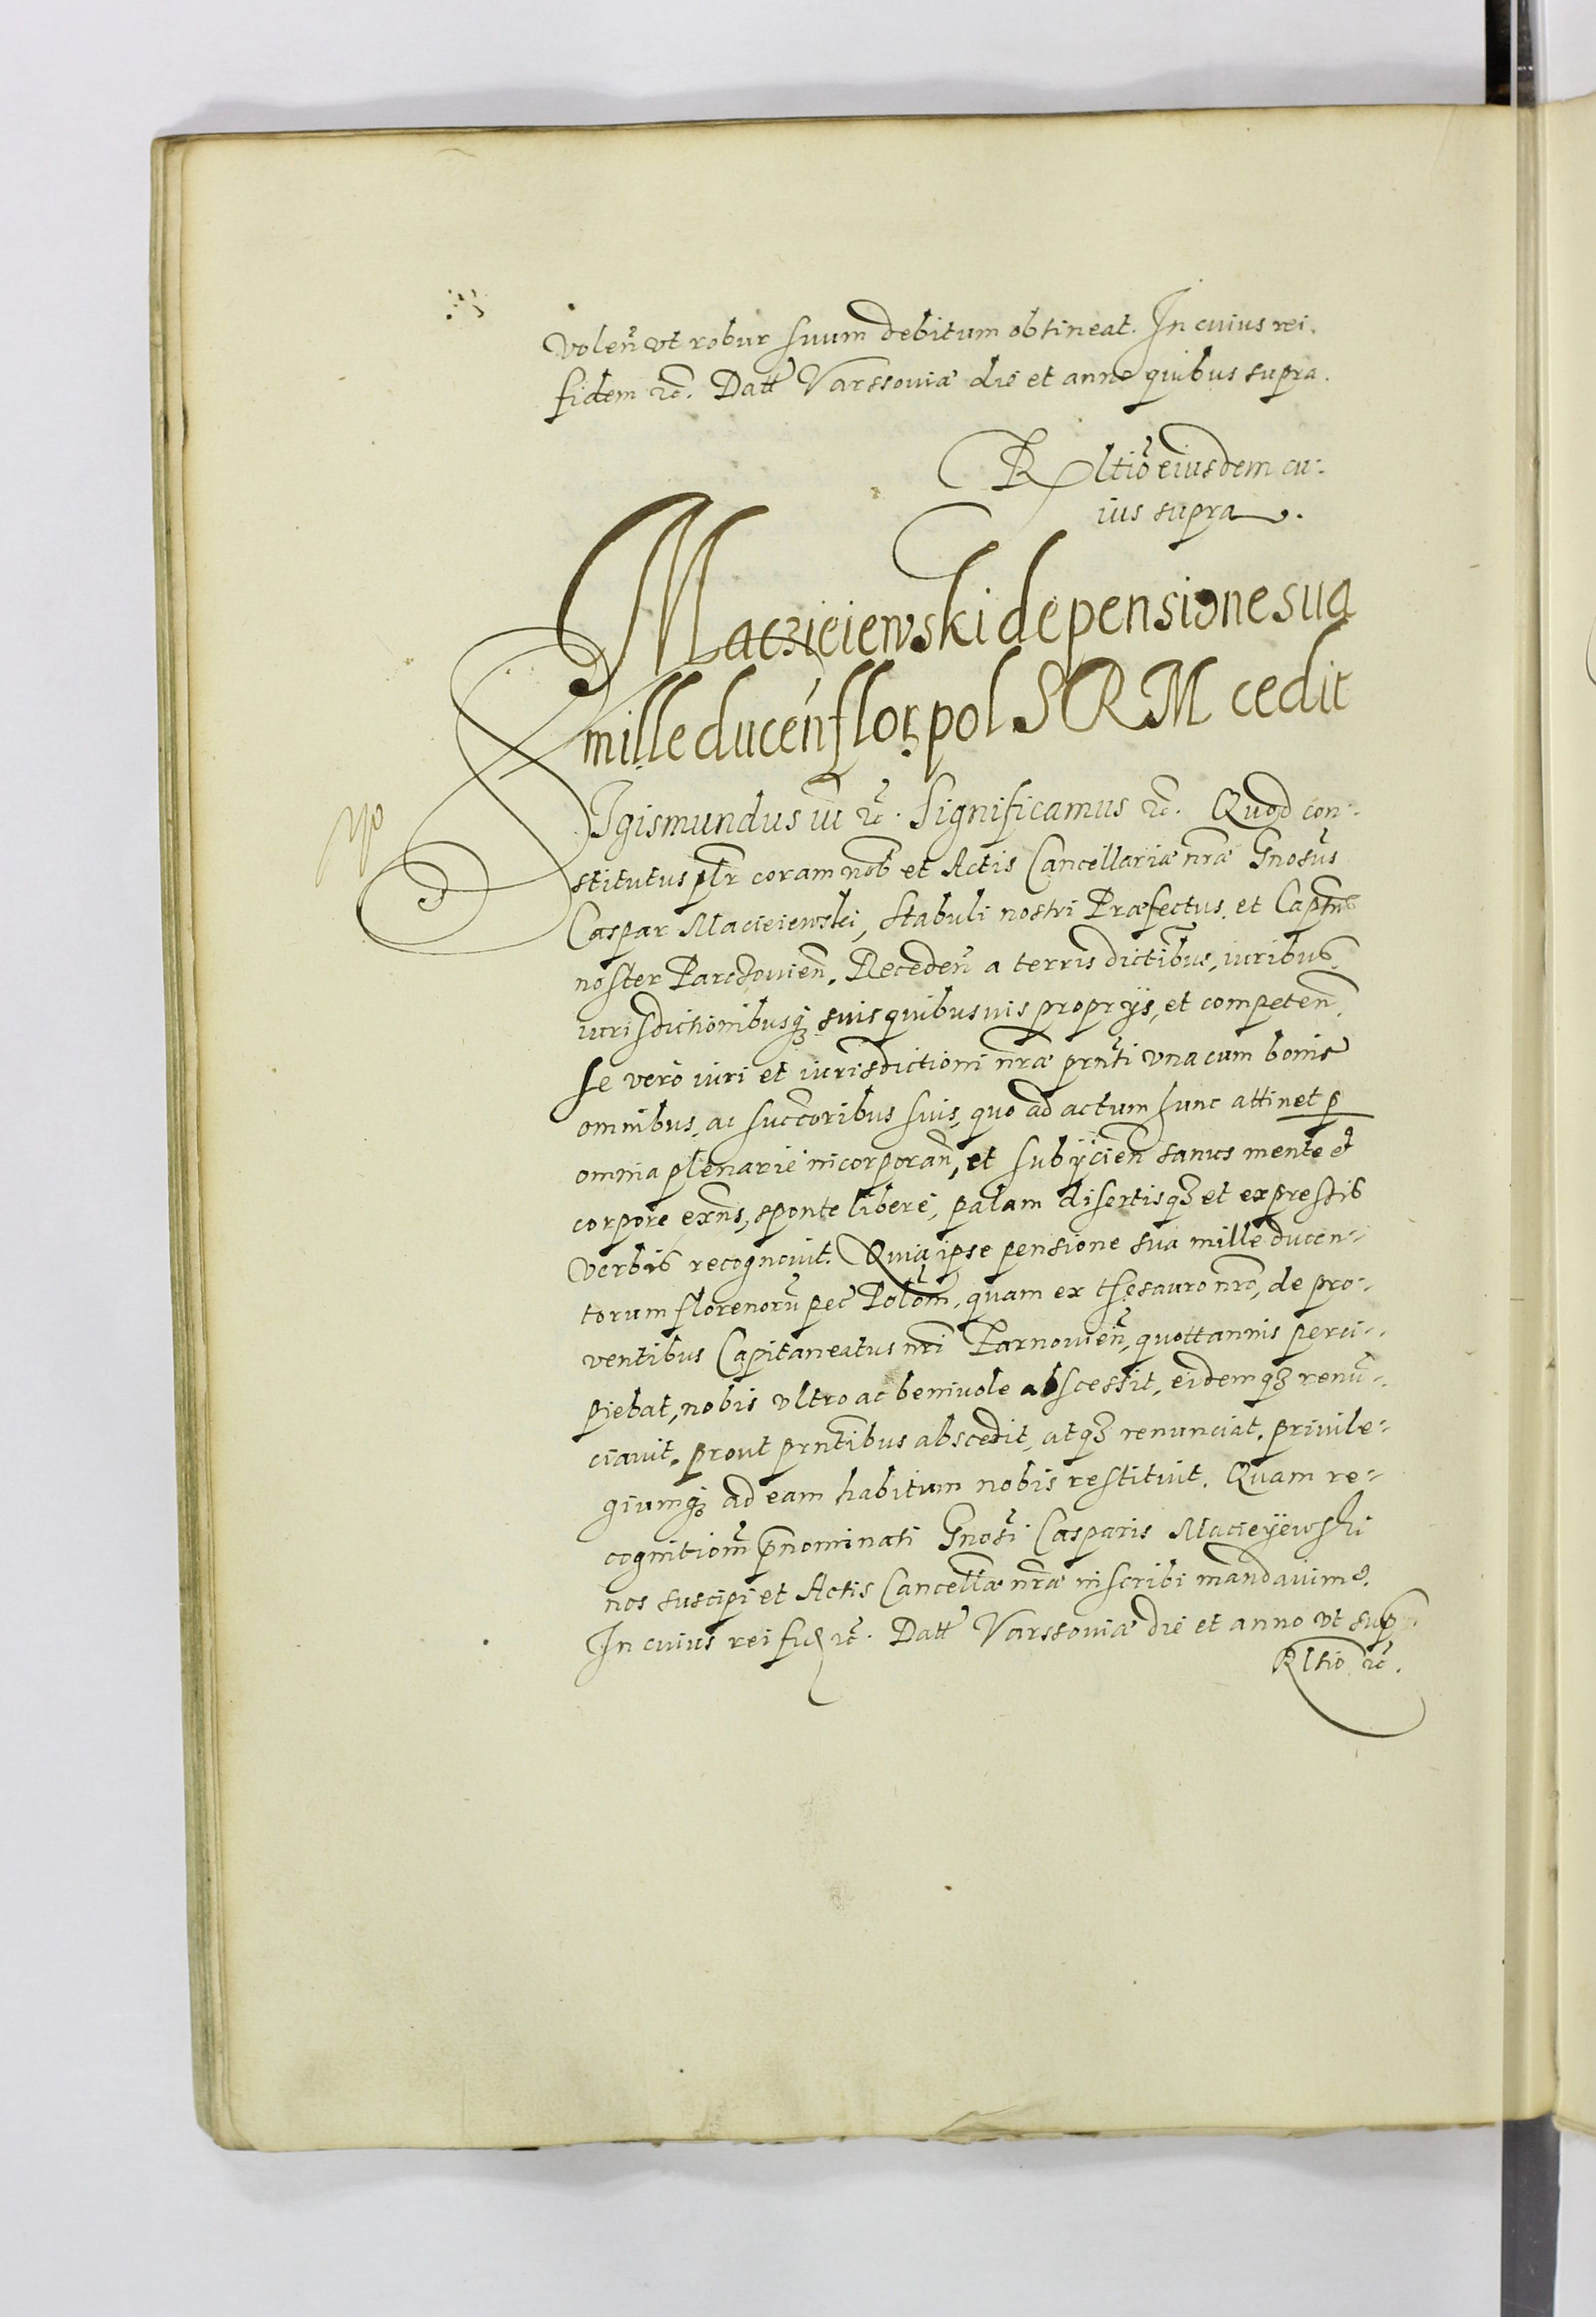 volen̄ vt robur suum debitum obtineat. In cuius rei
fidem ꝛc̄. Datt Varssouiæ die et anno quibus supra.
Rltiō eiusdem cu:
ius supra.
Maczieiewski de pensione sua
mille ducen̄ flor pol S R M cedit
SIgismundus iii ꝛc̄. Significamus ꝛc̄. Quod con:
stitutus plr̄ coram nob̄ et Actis Cancellariæ nr̄æ Gnosūs
Caspar Macieiewski, Stabuli nostri Præfectus, et Captn̄s
noster Parczouien̄. Receden̄ a terris dictib̄us, iuribus
iurisdictionibusqꝫ suis quibusuis proprijs, et competen̄.
se verò iuri et iurisdictioni nr̄æ prn̄ti vna cum bonis
omnibus, ac succ̄oribus suis, quo ad actum hunc attinet ꝑ
omnia plenariè incorporan̄, et subijcien̄ sanus mente et
corpore exn̄s, sponte liberè, palam disertisqꝫ et expressis
verbis recognouit. Quia ipse pensione sua mille ducen:
torum florenorū pec̄ Polōm, quam ex thesauro nr̄o, de pro:
ventibus Capitaneatus nr̄i Tarnouien̄, quottannis perci:
piebat, nobis vltro ac beniuole abscessit, eidemqꝫ renū:
ciauit, prout prn̄tibus abscedit, atqꝫ renunciat, priuile:
giumqꝫ ad eam habitum nobis restituit. Quam re:
cognitionē̄m p̄nominati Gnosi Casparis Macieyewski
nos suscipi et Actis Cancellæ nr̄æ inscribi mandauimꝰ.
In cuius rei fid ꝛc̄. Datt Varssouiæ die et anno vt sup.
Rltio ꝛc̄.